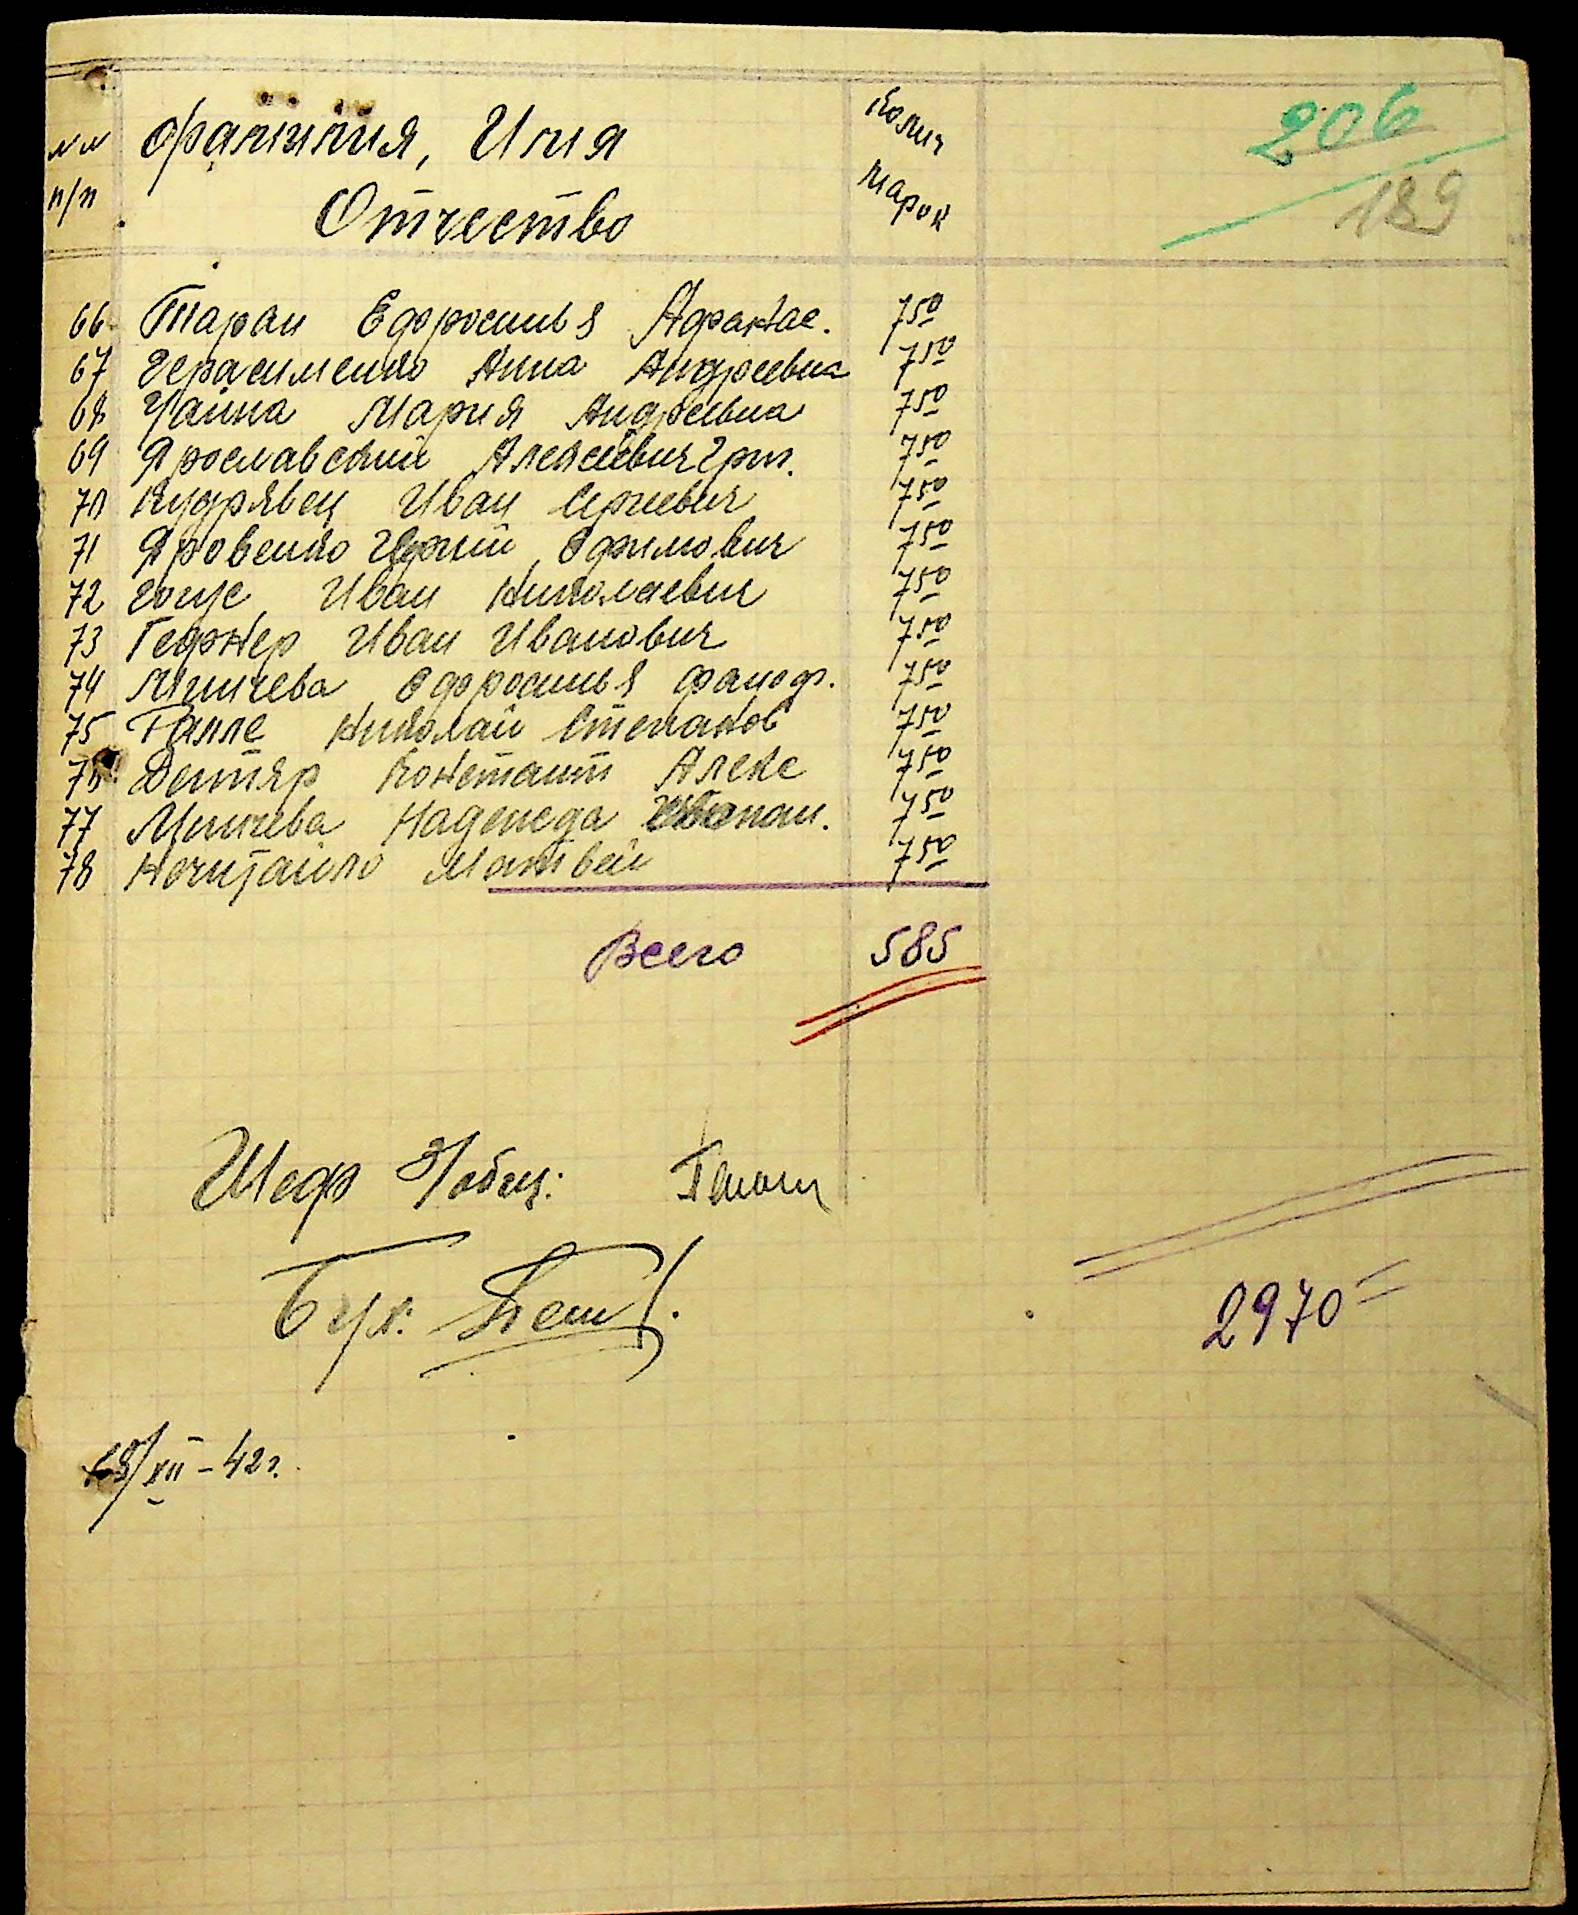 206
189
№ № Фамилия, Имя Колич
п/п Отчество марок
66 Таран Ефросинья Афанас. 7 50
67 Герасименко Анна Андреевна 7 50
68 Чайка Мария Андреевна 7 50
69 Ярославский Алексеевич Григ. 7 50
70 Кудрявец Иван Сергеевич 7 50
71 Яровенко Ефимович 7 50
72 Гогус Иван Николаевич 7 50
73 Гефнер Иван Иванович 7 50
74 Мничева Ефросинья Фанаф. 7 50
75 Галле Николай Степанов 7 50
76 Дегтяр Констант Алекс 7 50
77 Мничева Надежда 7 50
78 Нечитайло Матвей 7 50
Всего 585
Шеф З/общ:
Бух.
2970=
18/XII-42г.